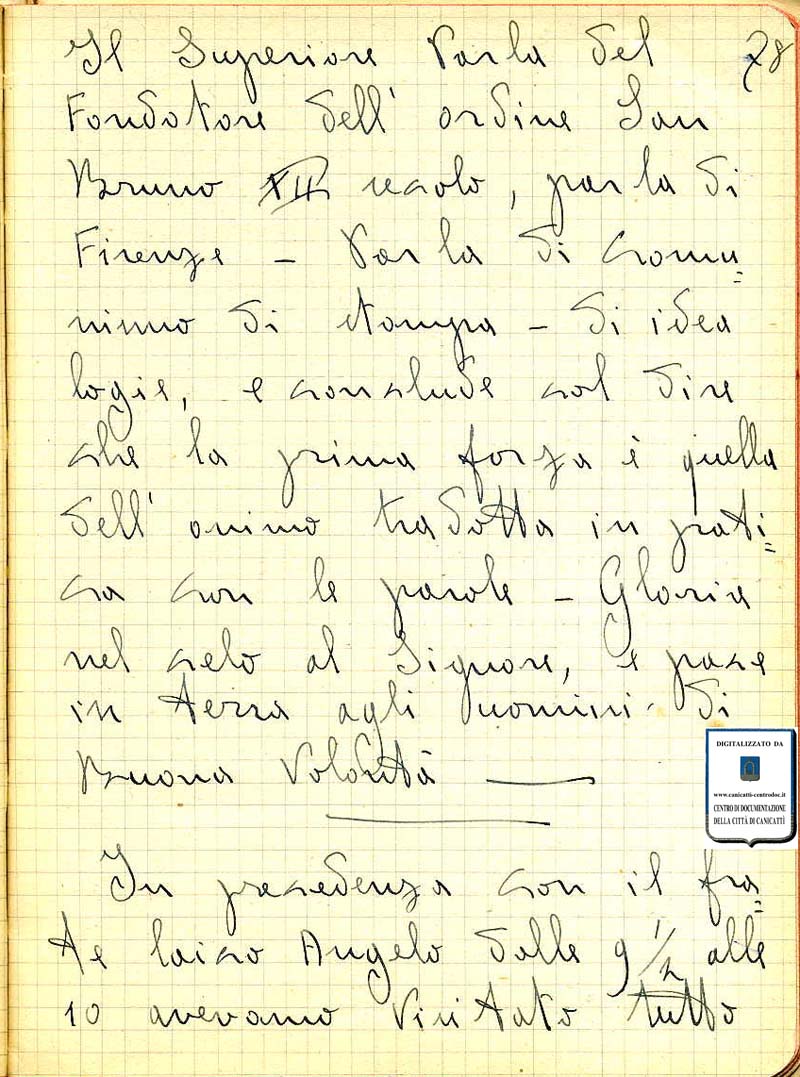 78
Il Superiore Parla del
Fondatore dell' ordine San
Bruno XII secolo, parla di
Firenze - Parla di comu=
nismo di stampa - di ideo
logie, e conclude col dire
che la prima forza è quella
dell' animo tradotta in prati=
ca con le parole - Gloria
nel cielo al Signore, e pace
in terra agli uomini di
Buona Volontà
In precedenza con il fra=
te laico Angelo dalle 9 1/2 alle
10 avevamo Visitato tutto
DIGITALIZZATO DA
www.canicatti-centrodoc.it
CENTRO DI DOCUMENTAZIONE
DELLA CITTÀ DI CANICATTÌ